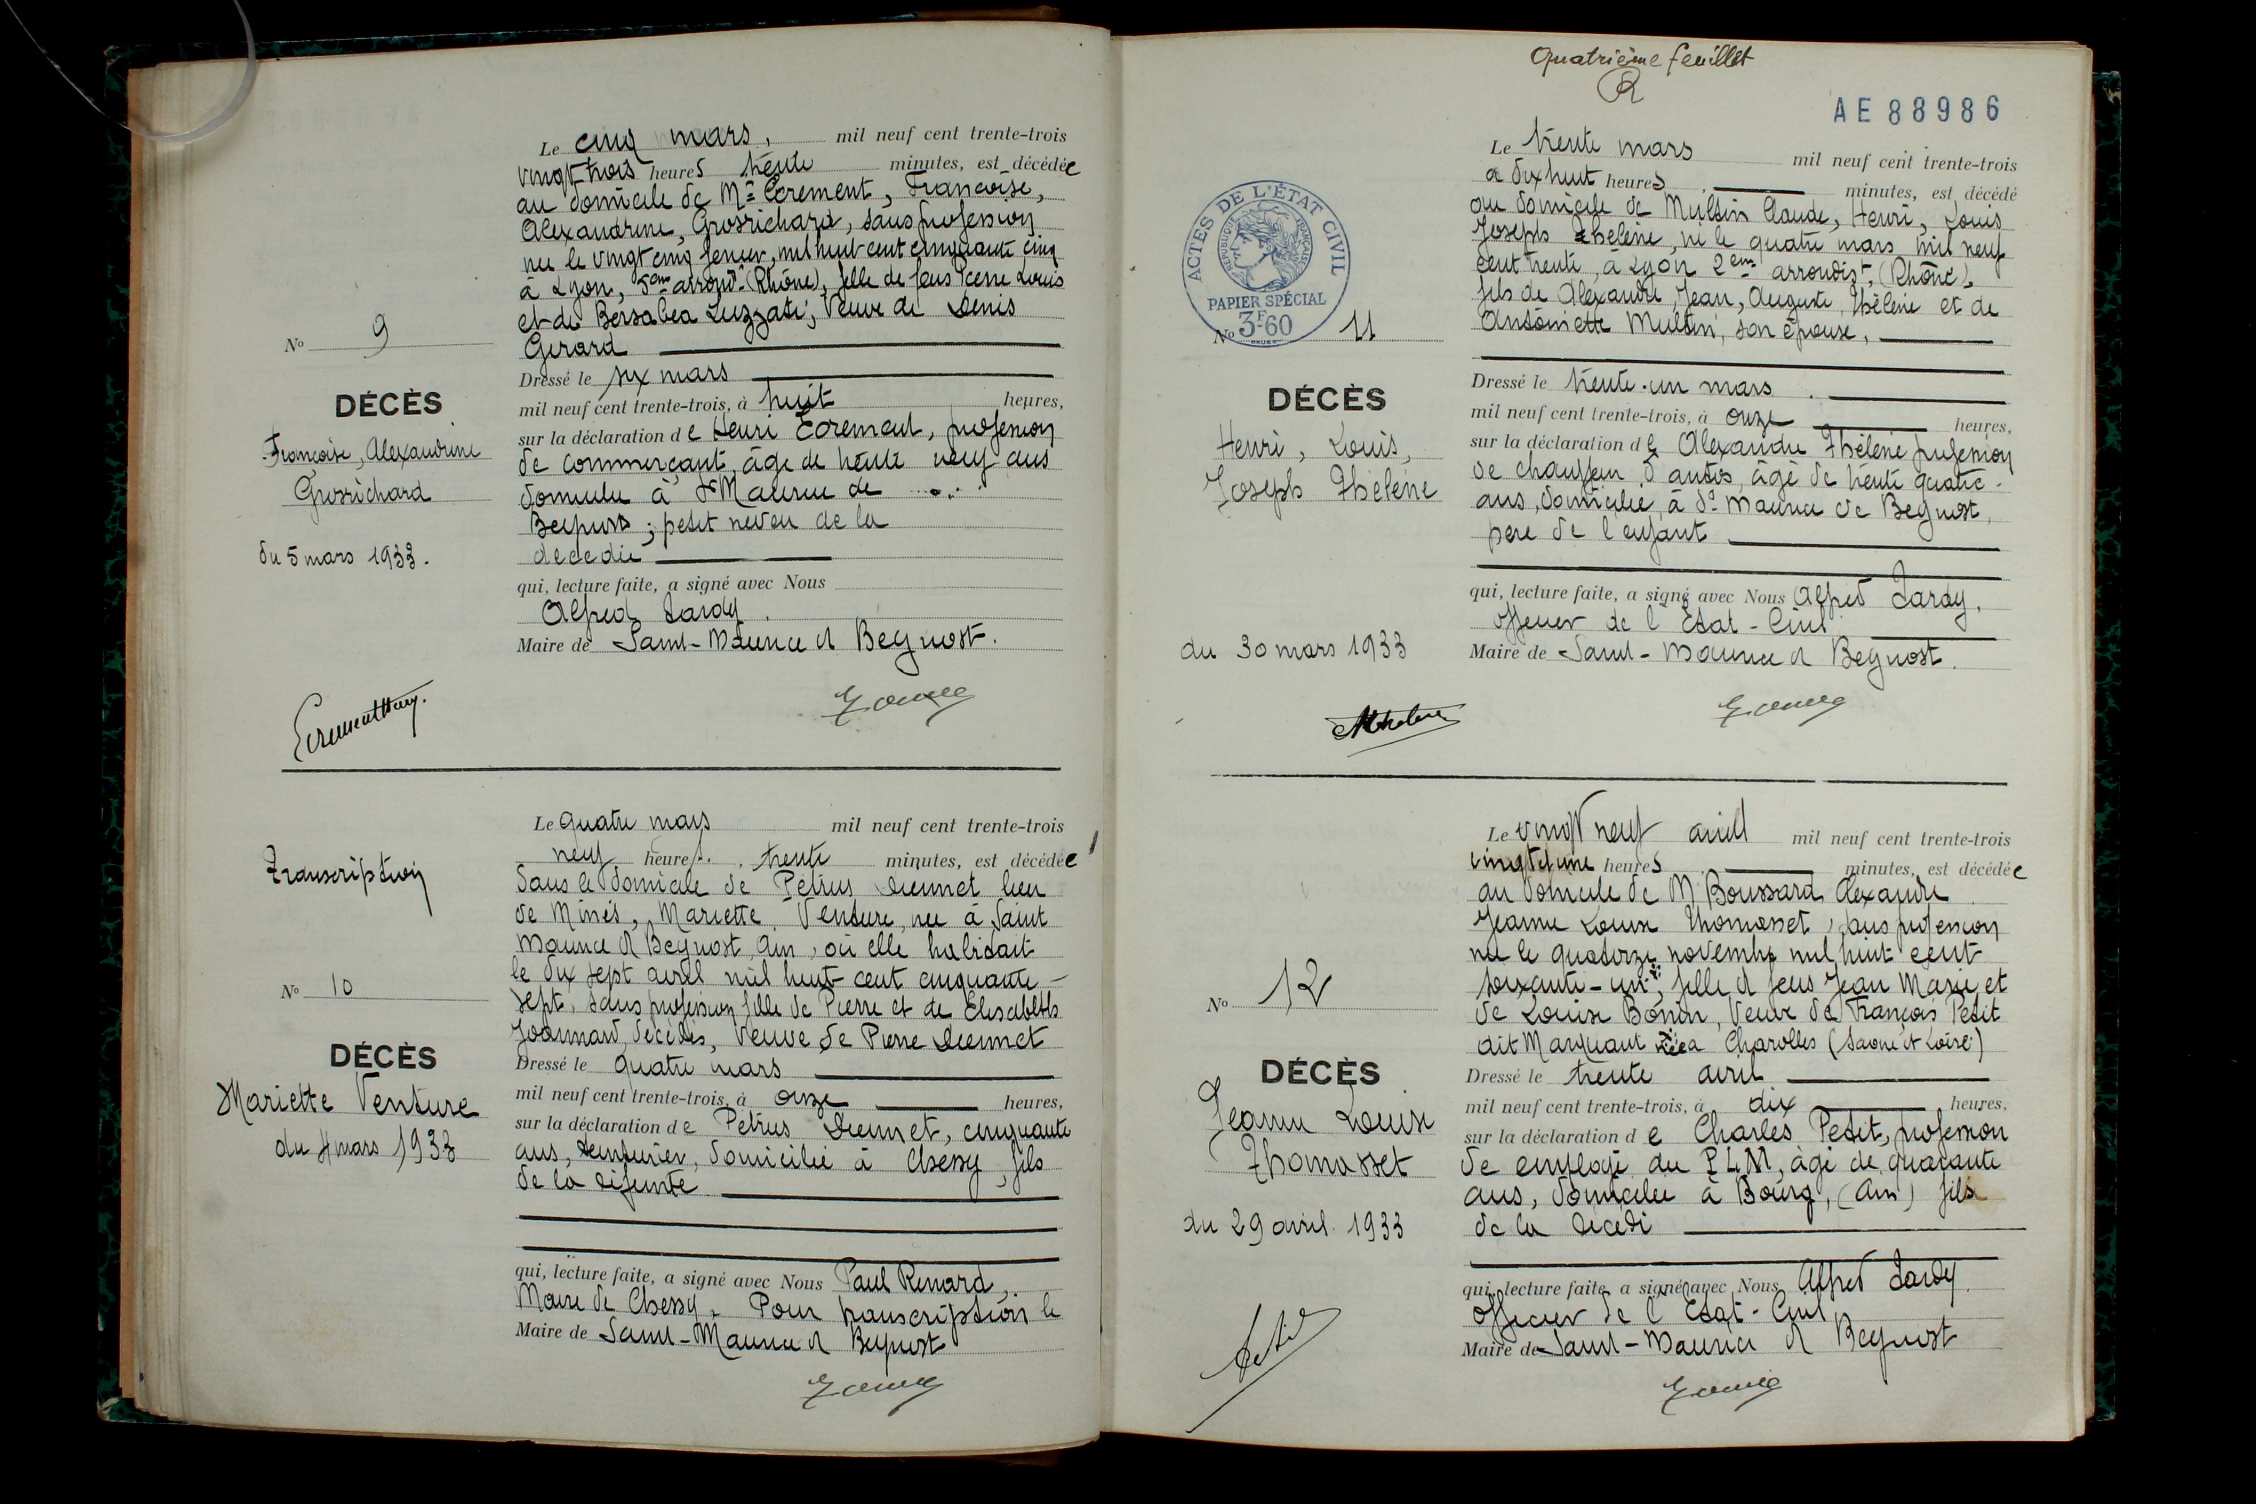 Le cinq mars, mil neuf cent trente-trois
vingt trois heures trente minutes, est décédée
au domicile de Mr Ecrement, Françoise,
Alexandrine, Grosrichard, sans profession
née le vingt cinq fevrier, mil huit cent cinquante cinq
à Lyon, 5em arrondt (Rhône), fille de feus Pierre Louis
et de Bersabea Luzzati; Veuve de Denis
Gerard
No 9
DÉCÈS
Françoise, Alexandrine
Grosrichard
du 5 mars 1933.
Dressé le six mars
mil neuf cent trente-trois, à huit heures,
sur la déclaration de Henri Ecrement, profession
de commerçant, âgé de trente neuf ans
domicilié à St Maurice de
Beynost; petit neveu de la
décédée
qui, lecture faite, a signé avec Nous
Alfred Tardy.
Maire de Saint-Maurice d Beynost.
Transcription
No 10
DÉCÈS
Mariette Venture
du 4 mars 1933
Le quatre mars mil neuf cent trente-trois
neuf heures. trente minutes, est décédée
dans le domicile de Pétrus lieu
de Minés, Mariette Venture, née à Saint
Maurice d Beynost, Ain, où elle habitait
le dix sept avril mil huit cent cinquante-
sept, sans profession fille de Pierre et de Elisabeth
Joannard, décédés, Veuve de Pierre
Dressé le quatre mars
mil neuf cent trente-trois, à onze heures,
sur la déclaration de Pétrus cinquante
ans, teinturier, domicilié à Chessy, fils
de la défunte
qui, lecture faite, a signé avec Nous Paul Renard,
Maire de Chessy. Pour transcription le
Maire de Saint-Maurice d Beynost
Quatrième feuillet
AE88986
ACTES DE L'ÉTAT CIVIL
RÉPUBLIQUE FRANÇAISE
PAPIER SPÉCIAL
3F60
No 11
DÉCÈS
Henri, Louis,
Joseph Thélène
du 30 mars 1933
Le trente mars mil neuf cent trente-trois
à dix huit heures minutes, est décédé
au domicile de Multin Claude, Henri, Louis
Joseph Thélène, né le quatre mars mil neuf
cent trente, à Lyon 2em arrondist, (Rhône),
fils de Alexandre, Jean, Auguste, Thélène et de
Antoinette Multin, son épouse,
Dressé le trente-un mars
mil neuf cent trente-trois, à onze heures,
sur la déclaration de Alexandre Thélène profession
de chauffeur d'autos, âgé de trente quatre
ans, domicilié, à St Maurice de Beynost,
père de l'enfant
qui, lecture faite, a signé avec Nous Alfred Tardy,
officier de l'Etat-Civil
Maire de Saint-Maurice d Beynost.
No 12
DÉCÈS
Jeanne Louise
Thomasset
du 29 avril 1933
Le vingt neuf avril mil neuf cent trente-trois
vingt et une heures minutes, est décédée
au domicile de M. Boussard Alexandre
Jeanne Louise Thomasset, sans profession
née le quatorze novembre mil huit cent
soixante-un; fille d feus Jean Marie et
de Louise Bonin, Veuve de François Petit
dit Marquant née à Charolles (Saone et Loire)
Dressé le trente avril
mil neuf cent trente-trois, à dix heures,
sur la déclaration de Charles Petit, profession
de employé au PLM, âgé de quarante
ans, domicilié à Bourg, (Ain) fils
de la décédé
qui, lecture faite, a signé avec Nous Alfred Tardy.
officier de l'Etat-Civil
Maire de Saint-Maurice d Beynost
Petit